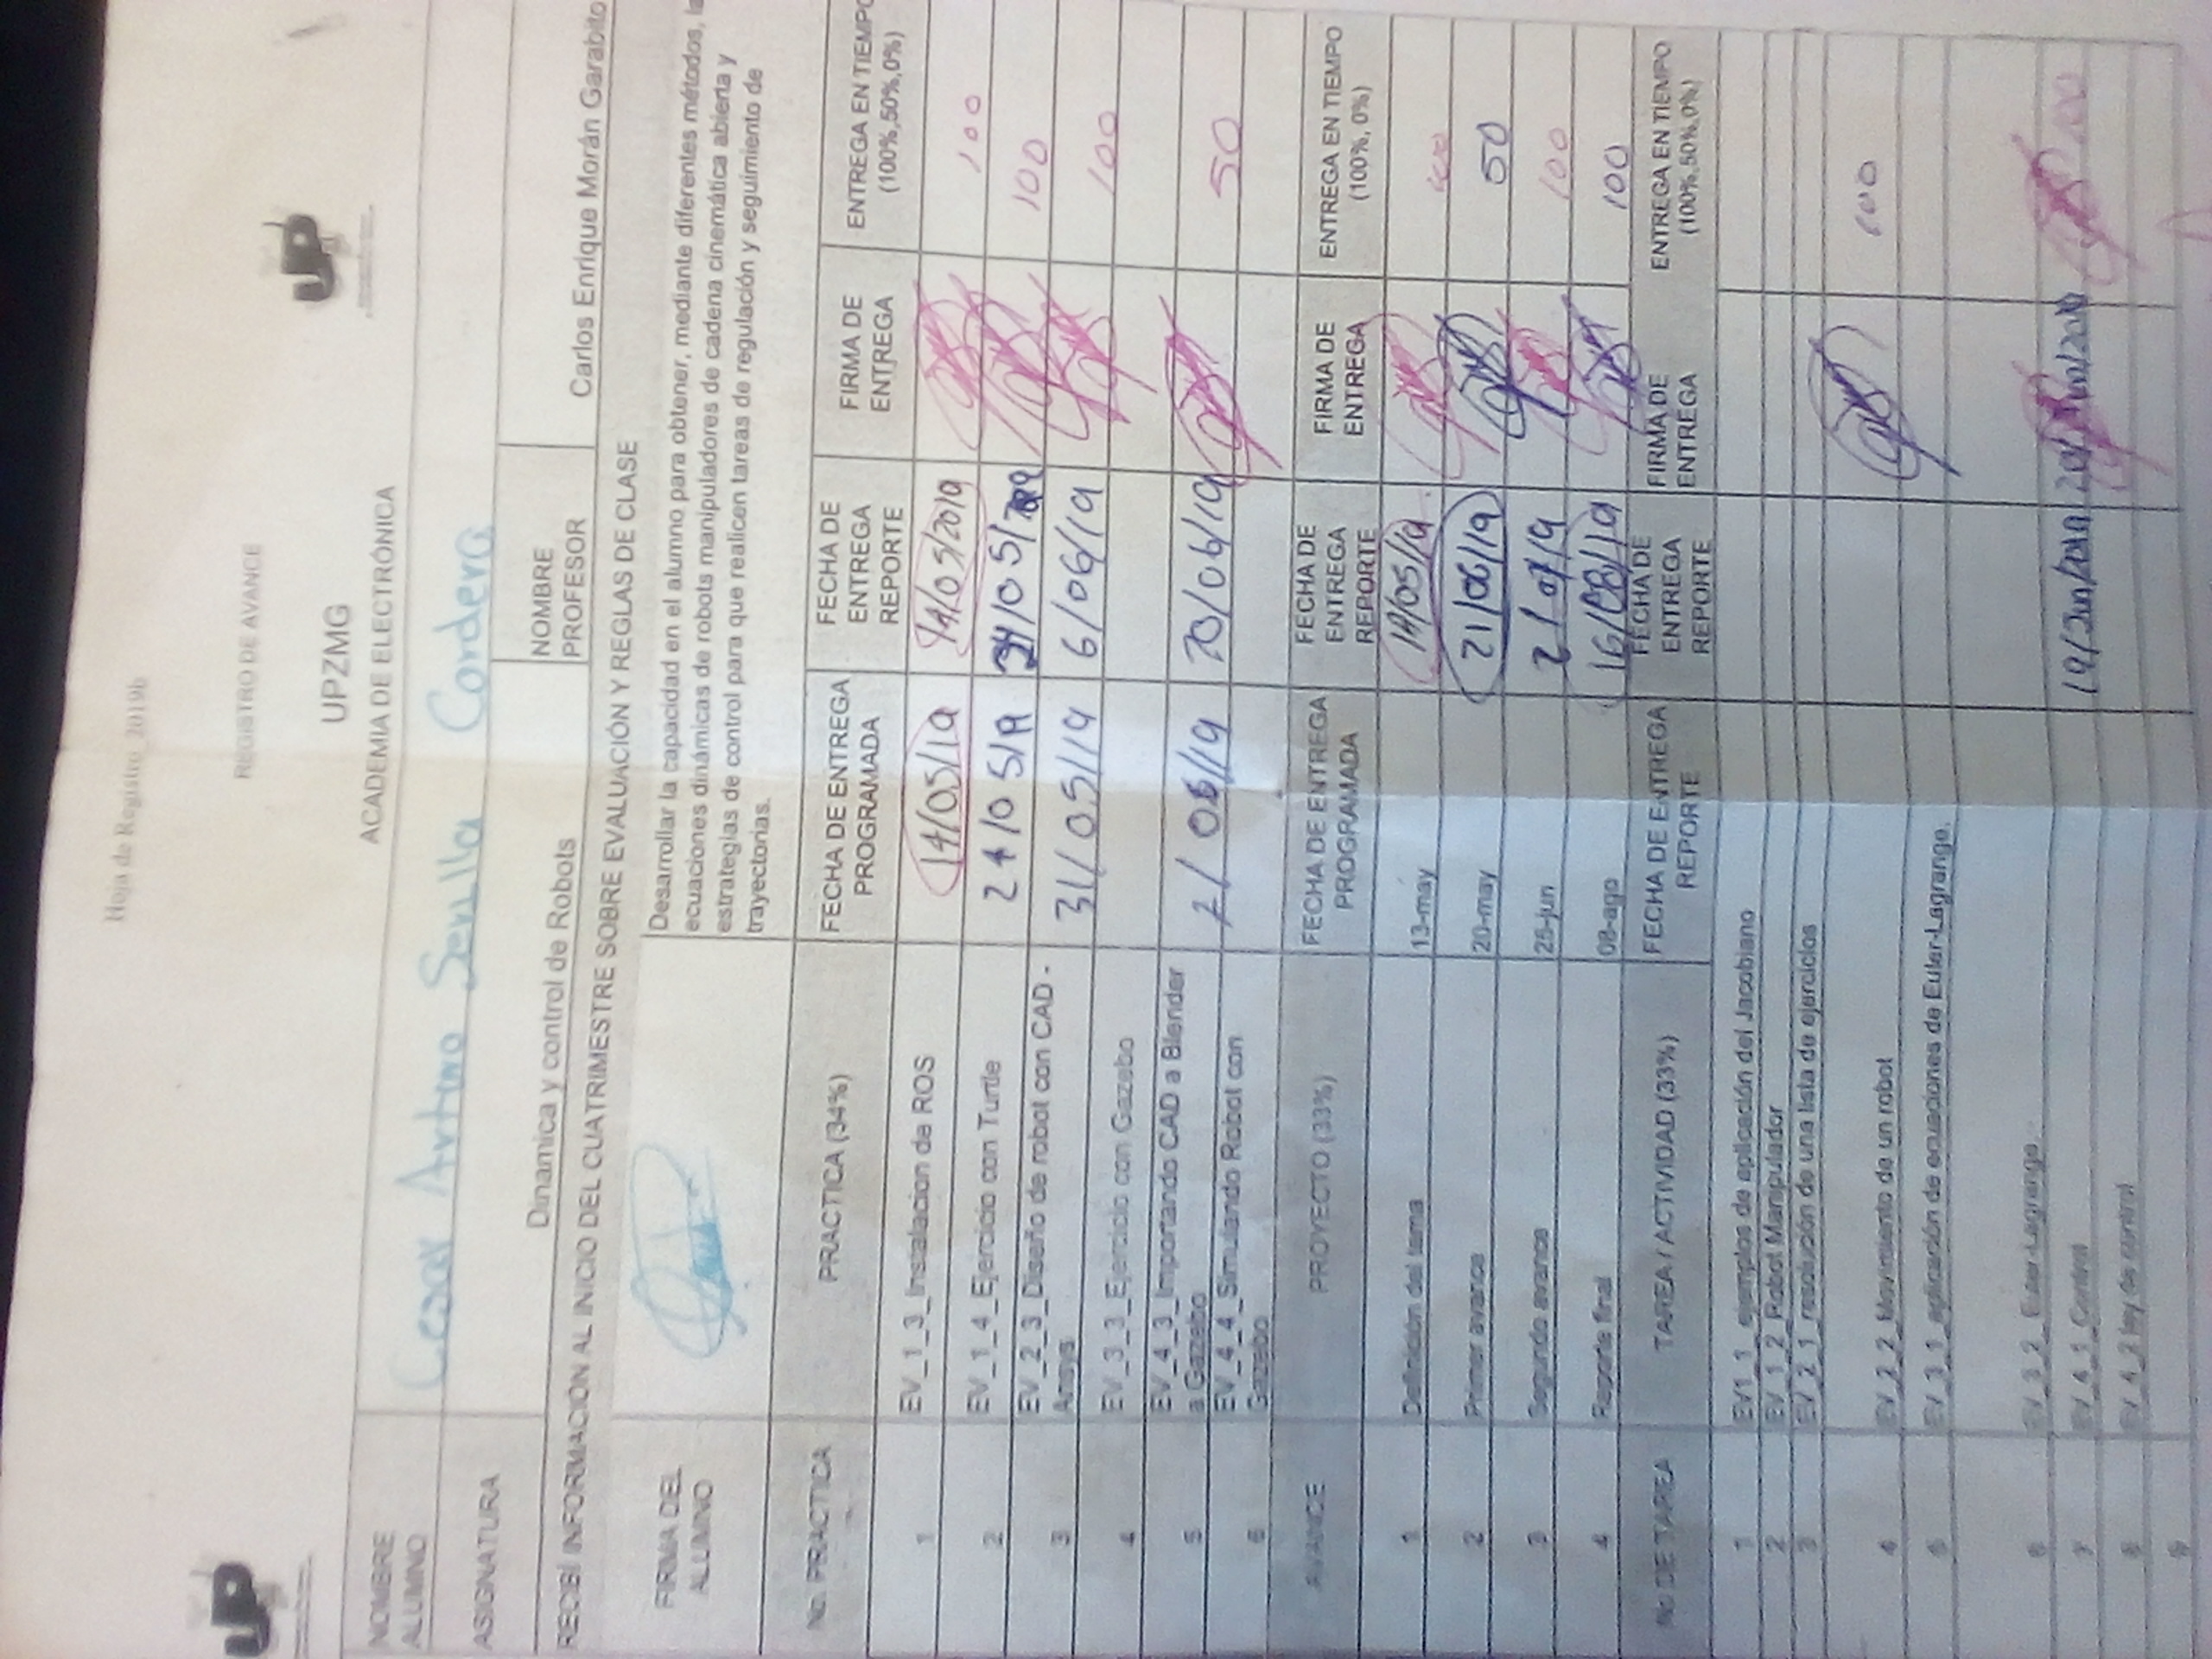 Hoja de Registro_2019b
REGISTRO DE AVANCE
UPZMG
ACADEMIA DE ELECTRÓNICA
NOMBRE ALUMNO Cesar Arturo Cordero
ASIGNATURA Dinamica y control de Robots NOMBRE PROFESOR Carlos Enrique Morán Garabito
RECIBÍ INFORMACION AL INICIO DEL CUATRIMESTRE SOBRE EVALUACIÓN Y REGLAS DE CLASE
FIRMA DEL ALUMNO
Desarrollar la capacidad en el alumno para obtener, mediante diferentes métodos, la
ecuaciones dinámicas de robots manipuladores de cadena cinemática abierta y
estrategias de control para que realicen tareas de regulación y seguimiento de
trayectorias.
No. PRACTICA PRACTICA (34%) FECHA DE ENTREGA PROGRAMADA FECHA DE ENTREGA REPORTE FIRMA DE ENTREGA ENTREGA EN TIEMPO (100%,50%,0%)
1 EV_1_3_Instalacion de ROS 14/05/19 14/05/2019 100
2 EV_1_4_Ejercicio con Turtle 24/05/19 100
3 EV_2_3_Diseño de robot con CAD - Ansys 31/05/19 6/06/19 100
4 EV_3_3_Ejercicio con Gazebo
5 EV_4_3_Importando CAD a Blender a Gazebo 20/06/19 50
6 EV_4_4_Simulando Robot con Gazebo
AVANCE PROYECTO (33%) FECHA DE ENTREGA PROGRAMADA FECHA DE ENTREGA REPORTE FIRMA DE ENTREGA ENTREGA EN TIEMPO (100%, 0%)
1 Definición del tema 13-may 14/05/19 100
2 Primer avance 20-may 21/06/19 50
3 Segundo avance 25-jun 100
4 Reporte final 08-ago 16/08/19 100
No DE TAREA TAREA / ACTIVIDAD (33%) FECHA DE ENTREGA REPORTE FECHA DE ENTREGA REPORTE FIRMA DE ENTREGA ENTREGA EN TIEMPO (100%,50%,0%)
1 EV1_1_ ejemplos de aplicación del Jacobiano
2 EV_1_2_Robot Manipulador
3 EV_2_1_resolución de una lista de ejercicios
4 EV_2_2_Movimiento de un robot 100
5 EV_3_1_aplicación de ecuaciones de Euler-Lagrange.
6 EV_3_2_ Euler-Lagrange.
7 EV_4_1_Control 100
8 EV_4_2 ley de control
9